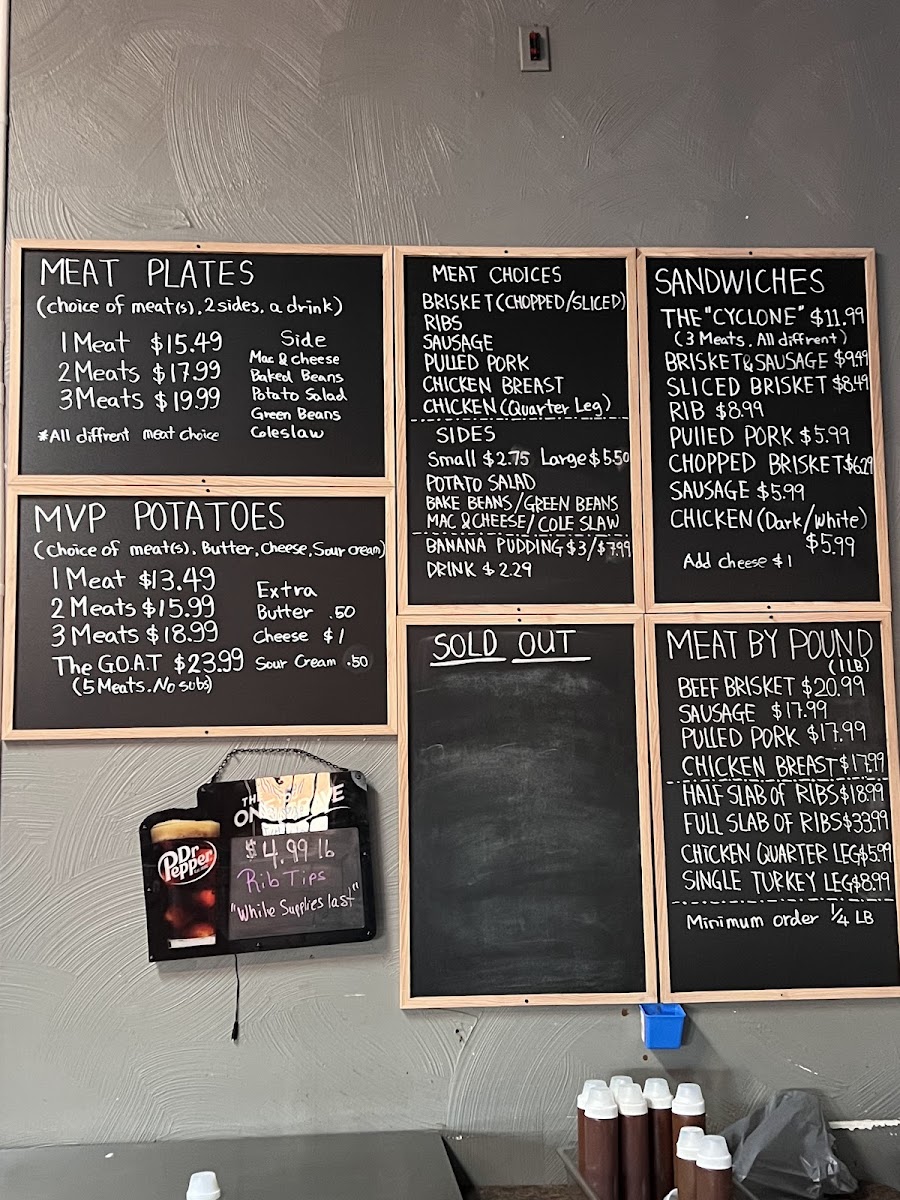 MEAT PLATES
(choice of meat(s), 2 sides, a drink)
1 Meat $15.49
2 Meats $17.99
3 Meats $19.99
*All diffrent meat choice
Side
Mac & cheese
Baked Beans
Potato Salad
Green Beans
Coleslaw
MVP POTATOES
(choice of meat(s), Butter, cheese, Sour cream)
1 Meat $13.49
2 Meats $15.99
3 Meats $18.99
The G.O.A.T $23.99
(5 Meats. No subs)
Extra
Butter .50
cheese $1
Sour Cream .50
MEAT CHOICES
BRISKET (CHOPPED/SLICED)
RIBS
SAUSAGE
PULLED PORK
CHICKEN BREAST
CHICKEN (Quarter Leg)
SIDES
Small $2.75 Large $5.50
POTATO SALAD
BAKE BEANS/GREEN BEANS
MAC & CHEESE/COLE SLAW
BANANA PUDDING $3/$7.99
DRINK $2.29
SANDWICHES
THE "CYCLONE" $11.99
(3 Meats. All diffrent)
BRISKET & SAUSAGE $9.49
SLICED BRISKET $8.49
RIB $8.99
PUllED PORK $5.99
CHOPPED BRISKET $6.29
SAUSAGE $5.99
CHICKEN (Dark/white)
$5.99
Add cheese $1
SOLD OUT
MEAT BY POUND
(1LB)
BEEF BRISKET $20.99
SAUSAGE $17.99
PULLED PORK $17.99
CHICKEN BREAST $17.99
HALF SLAB OF RIBS $18.99
FULL SLAB OF RIBS $33.99
CHICKEN QUARTER LEG $5.99
SINGLE TURKEY LEG $8.99
Minimum order 1/4 LB
Dr Pepper
$4.99 lb
Rib Tips
"While Supplies last"